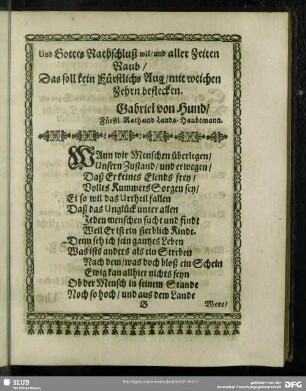 Und Gottes Rathschluß wil / und aller Zeiten
Raub /
Das soll kein Fürstlichs Aug / mit weichen
Zehrn beflecken.
Gabriel von Hund /
Fürstl. Rath und Lands-Haubtmann.
WAnn wir Menschen überlegen /
Unsern Zustand / und erwegen /
Daß Er keines Elends frey /
Volles Kummers Sorgen sey /
Et so will das Urtheil fallen
Daß das Unglück unter allen
Jeden menschen sucht und findt
Weil Er ist ein sterblich Kindt.
Denn seh ich sein gantzes Leben
Was ists anders als ein Streben
Nach dem / was doch bloß ein Schein
Ewig kan allhier nichts seyn
Ob der Mensch in seinem Stande
Noch so hoch / und aus dem Lande
B Were /
SLUB